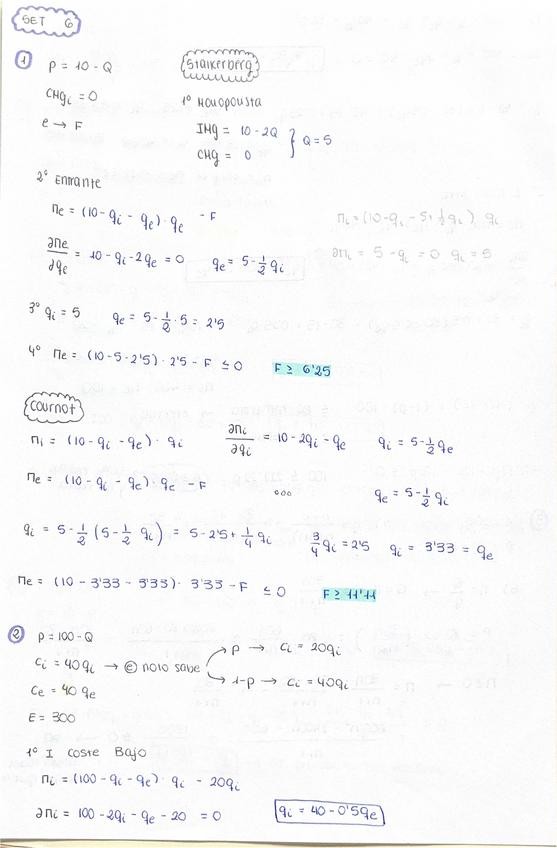 SET 6
① P = 10 - Q
Stalkerberg
CMgi = 0
1º Monopolista
e → F
IMg = 10 - 2Q } Q = 5
CMg = 0
2º Entrante
Πe = (10 - qi - qe) · qe - F
Πi = (10 - qi - 5 + ½qi) qi
∂Πe/∂qe = 10 - qi - 2qe = 0 qe = 5 - ½ qi
∂Πi = 5 - qi = 0 qi = 5
3º qi = 5 qe = 5 - ½ · 5 = 2'5
4º Πe = (10 - 5 - 2'5) · 2'5 - F ≤ 0 F ≥ 6'25
Cournot
Πi = (10 - qi - qe) · qi ∂Πi/∂qi = 10 - 2qi - qe qi = 5 - ½ qe
Πe = (10 - qi - qe) · qe - F ... qe = 5 - ½ qi
qi = 5 - ½ (5 - ½ qi) = 5 - 2'5 + ¼ qi ¾ qi = 2'5 qi = 3'33 = qe
Πe = (10 - 3'33 - 3'33) · 3'33 - F ≤ 0 F ≥ 11'11
② P = 100 - Q
Ci = 40qi → ⓔ no lo sabe
P → Ci = 20qi
1-P → Ci = 40qi
Ce = 40 qe
E = 300
1º I COSTE BAJO
Πi = (100 - qi - qe) · qi - 20qi
∂Πi = 100 - 2qi - qe - 20 = 0 qi = 40 - 0'5qe